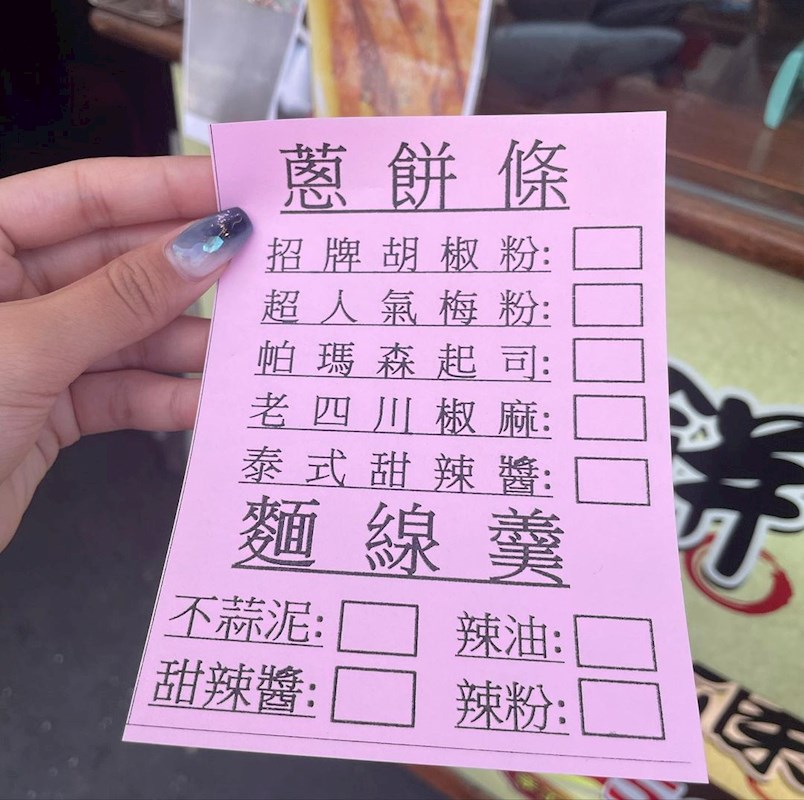 蔥餅條
招牌胡椒粉:
超人氣梅粉:
帕瑪森起司:
老四川椒麻:
泰式甜辣醬:
麵線羹
不蒜泥: 辣油:
甜辣醬: 辣粉:
餅